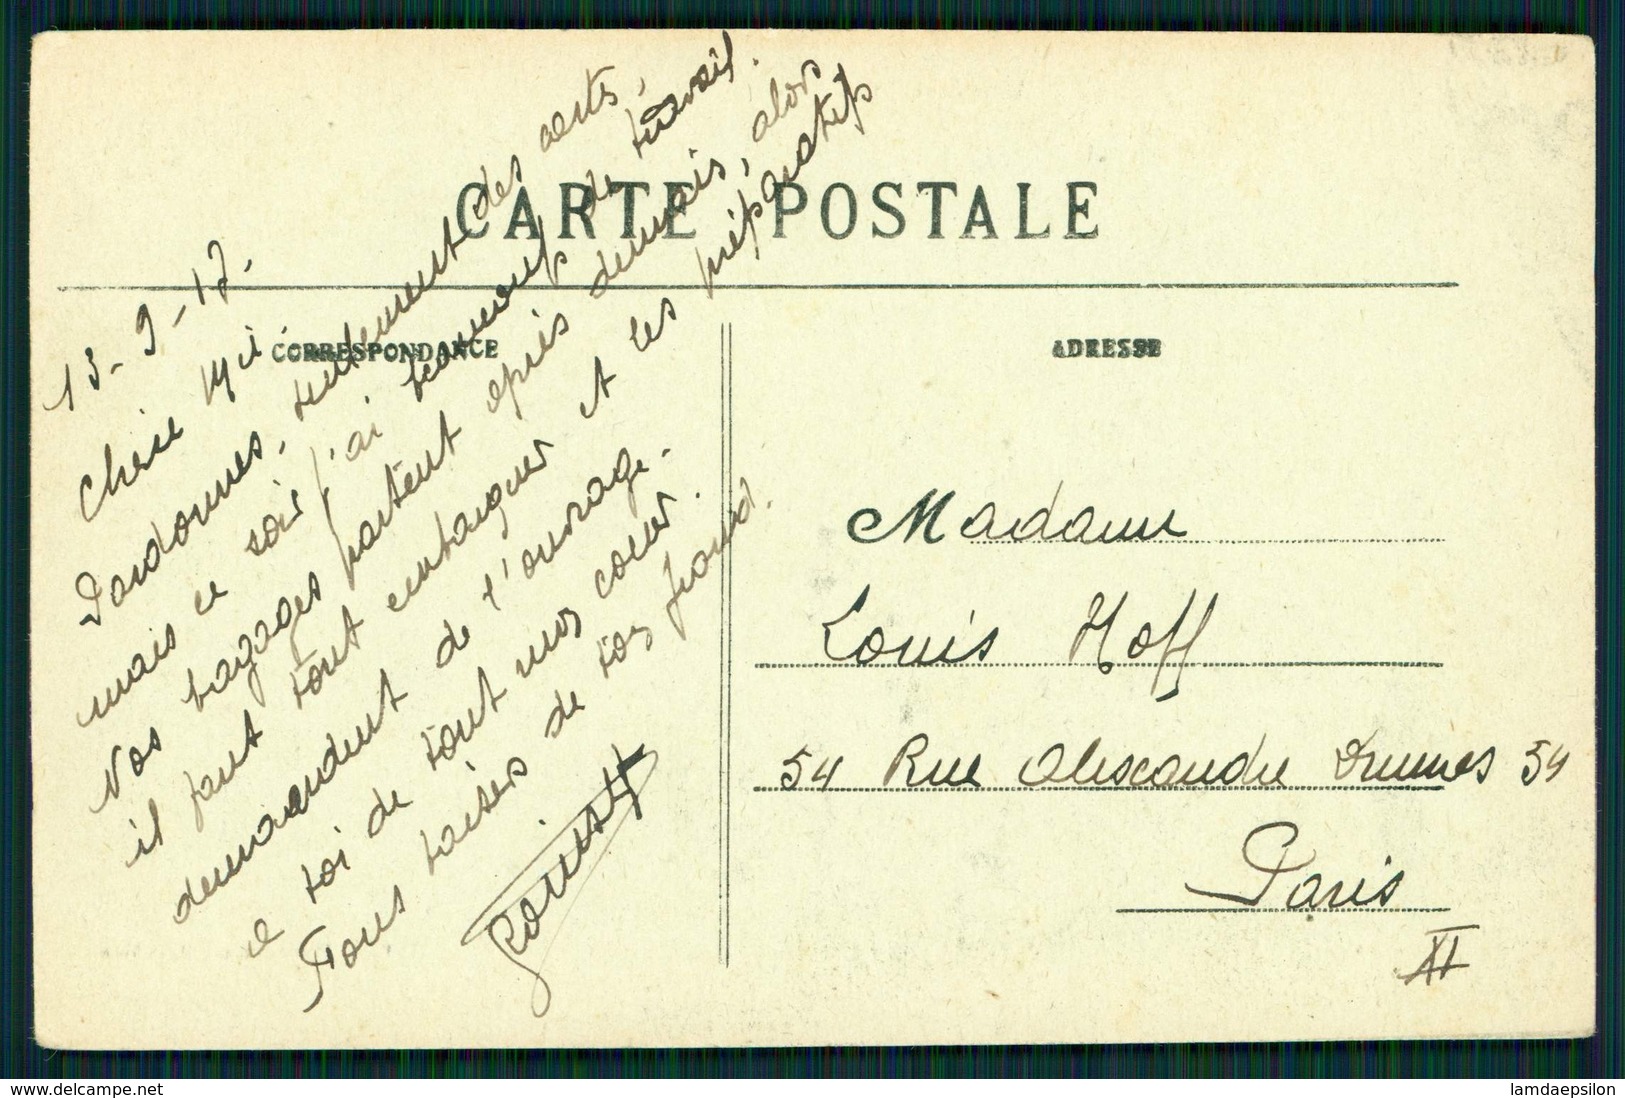 CARTE POSTALE
CORRESPONDANCE
ADRESSE
13-9-17.
Chère
Pardonnes, seulement des cartes,
mais ce soir j'ai beaucoup de travail.
Nos bagages partent après demain, alors
il faut tout embarquer et les préparatifs
demandent de l'ouvrage.
a toi de tout mon cœur.
Tous baisers de ton grand.
Louis H
Madame
Louis Hoff
54 Rue Alexandre Dumas 54
Paris
XI
www.delcampe.net
lamdaepsilon